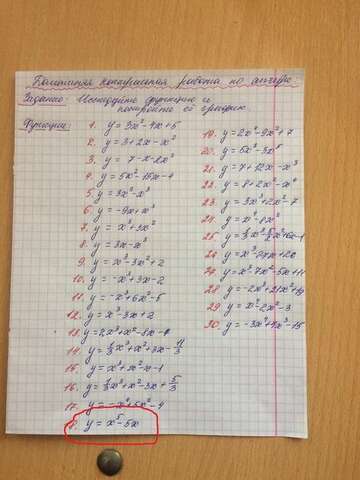 Домашняя контрольная работа по алгебре
Задание: Исследуйте функцию и
постройте её график.
Функции:
1. y = 3x² - 4x + 5
2. y = 3 + 2x - x²
3. y = 7 - x - 2x²
4. y = 5x² - 15x - 4
5. y = 3x² - x³
6. y = -9x + x³
7. y = x³ + 3x²
8. y = 3x - x³
9. y = x³ - 3x² + 2
10. y = -x³ + 3x - 2
11. y = -x³ + 6x² - 5
12. y = x³ - 3x + 2
14. y = 1/3 x³ + x² + 3x - 11/3
15. y = x³ + x² - x - 1
16. y = 1/3 x³ + x² - 3x + 5/3
17. y = -x⁴ + 5x² - 4
18. y = x⁵ - 5x
19. y = 2x⁴ - 9x² + 7
20. y = 5x³ - 3x⁵
21. y = 7 + 12x - x³
22. y = 8 + 2x² - x⁴
23. y = x³ + 3x² - 7
24. y = x⁴ - 8x²
28. y = -2x³ + 21x² + 19
29. y = x⁴ - 2x² - 3